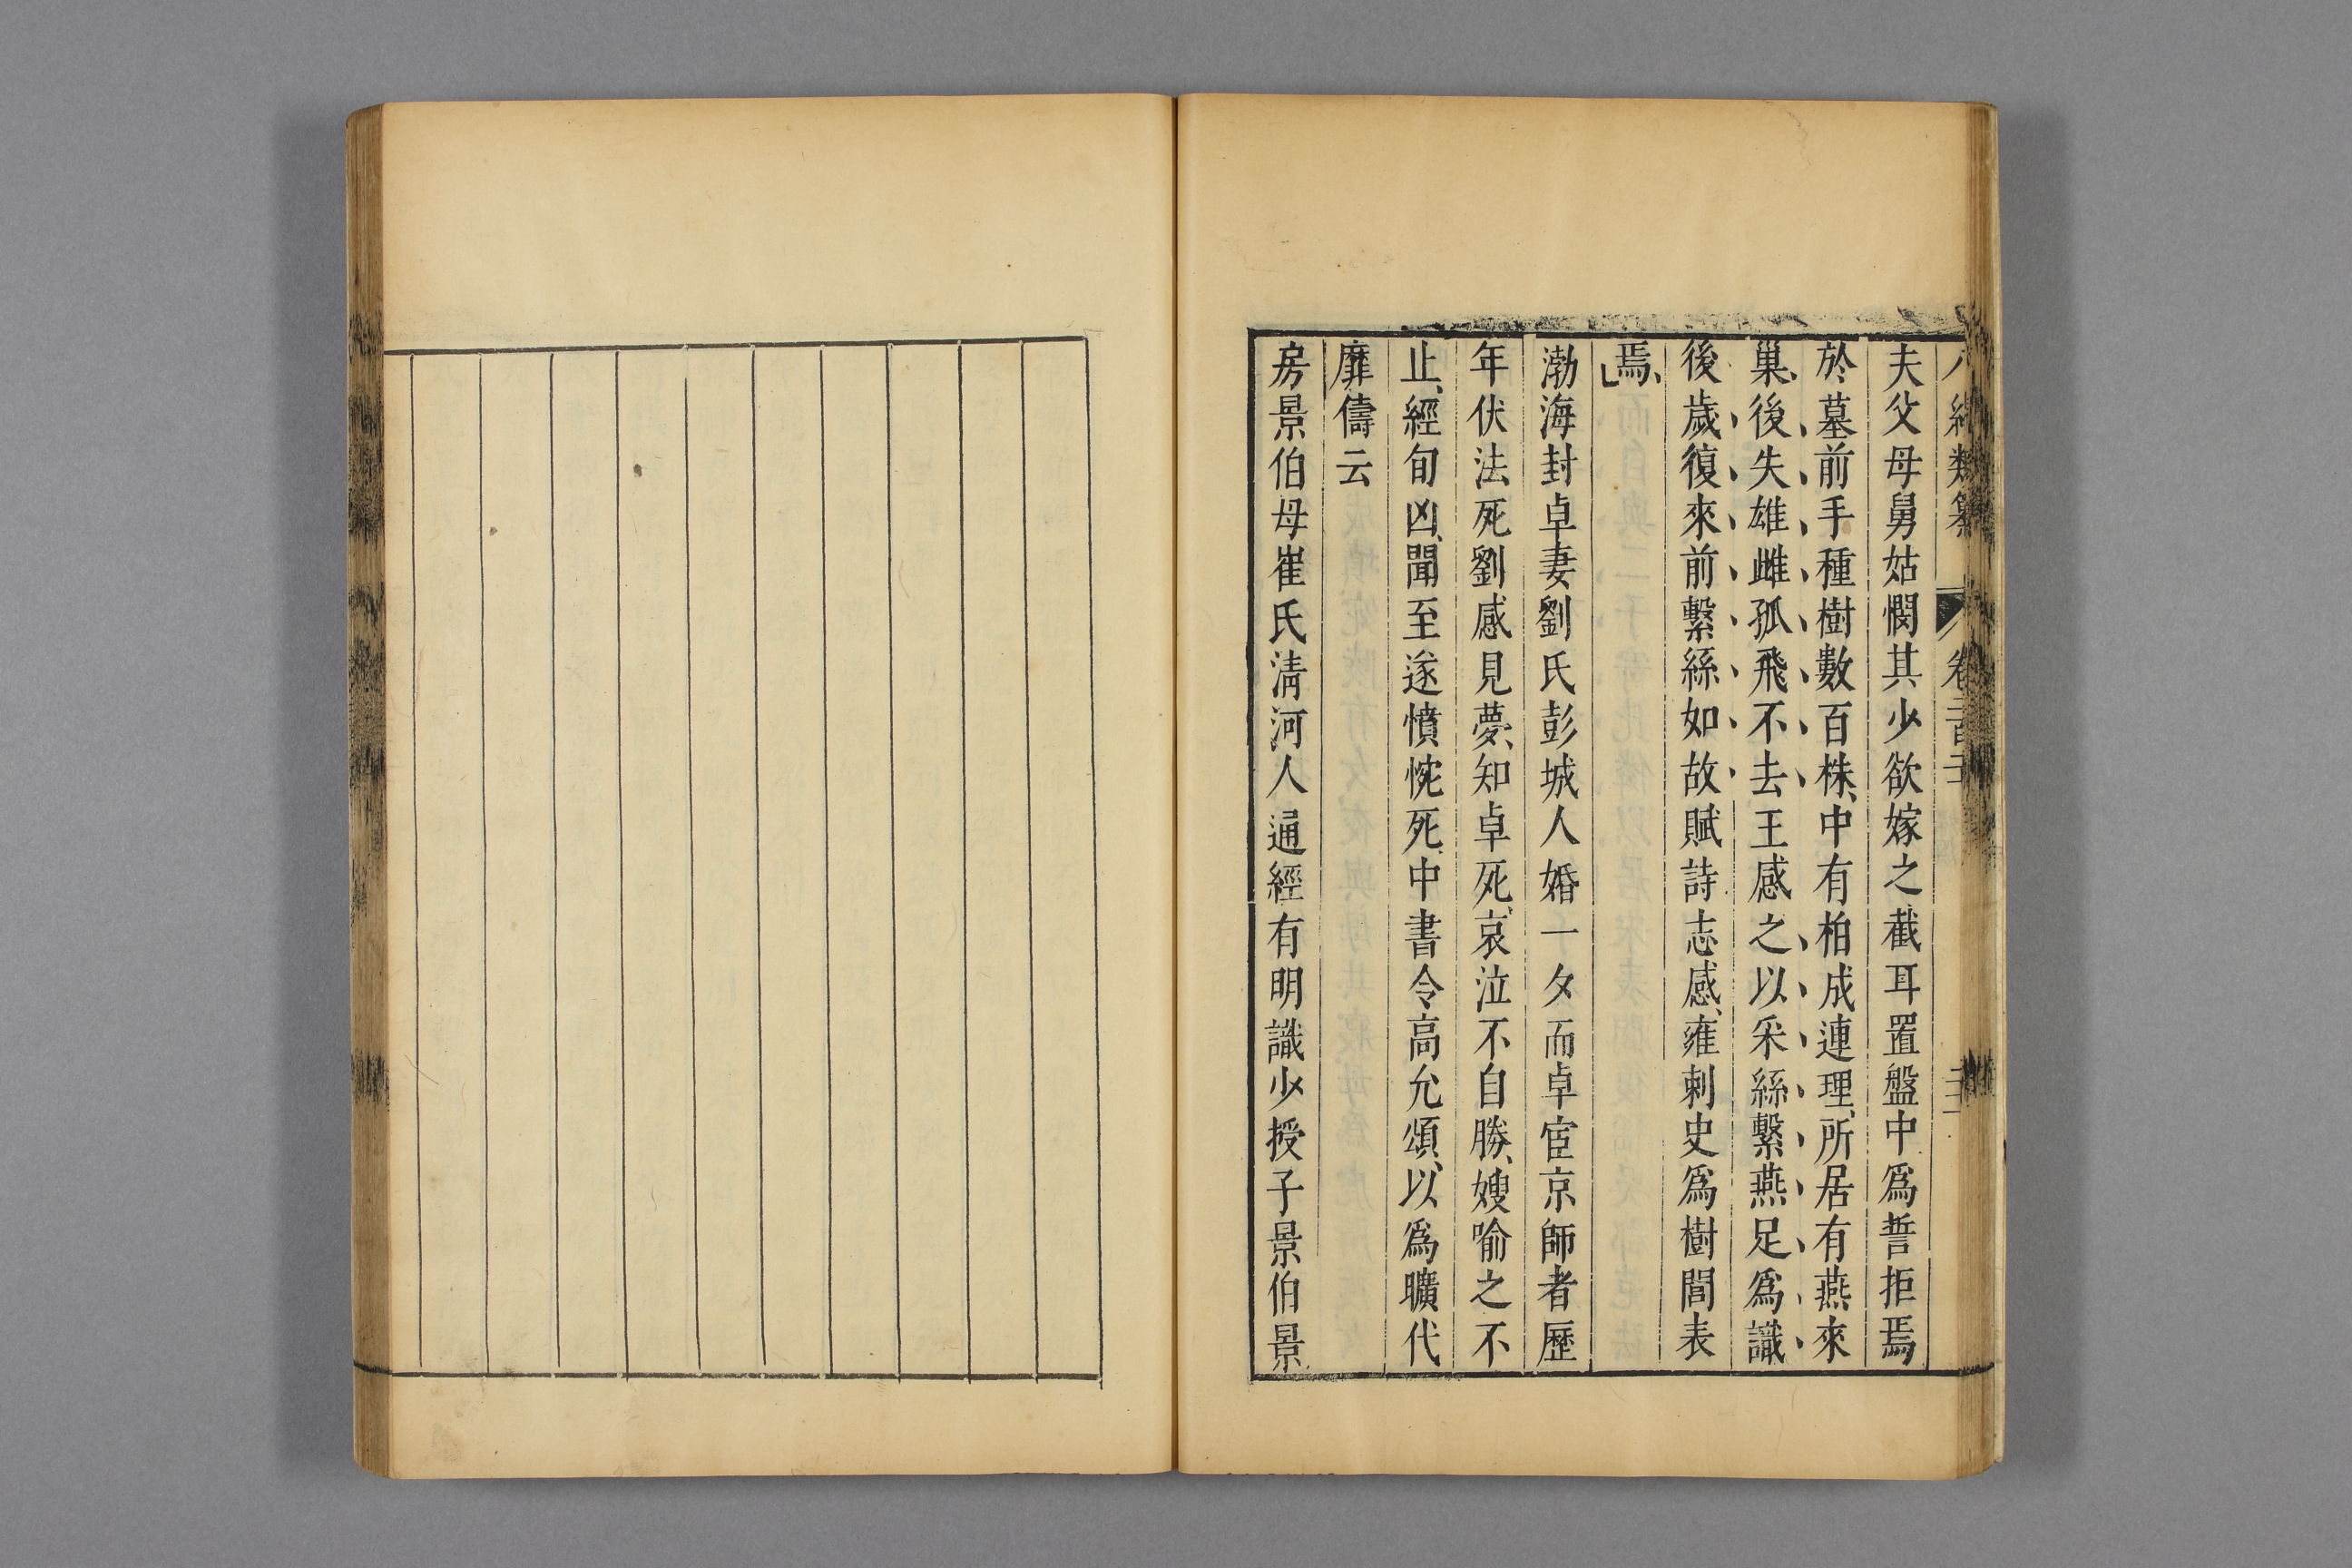 夫父母舅姑憫其少欲嫁之截耳置盤中爲誓拒焉
於墓前手種樹數百株中有柏成連理所居有燕來
巢後失雄雌孤飛不去王感之以采絲繫燕足爲識
後歲復來前繫絲如故賦詩志感雍刺史爲樹閭表
焉
渤海封卓妻劉氏彭城人婚一夕而卓宦京師者歷
年伏法死劉感見夢知卓死哀泣不自勝嫂喻之不
止經旬凶聞至遂憤惋死中書令高允頌以爲曠代
靡儔云
房景伯母崔氏淸河人通經有明識少授子景伯景